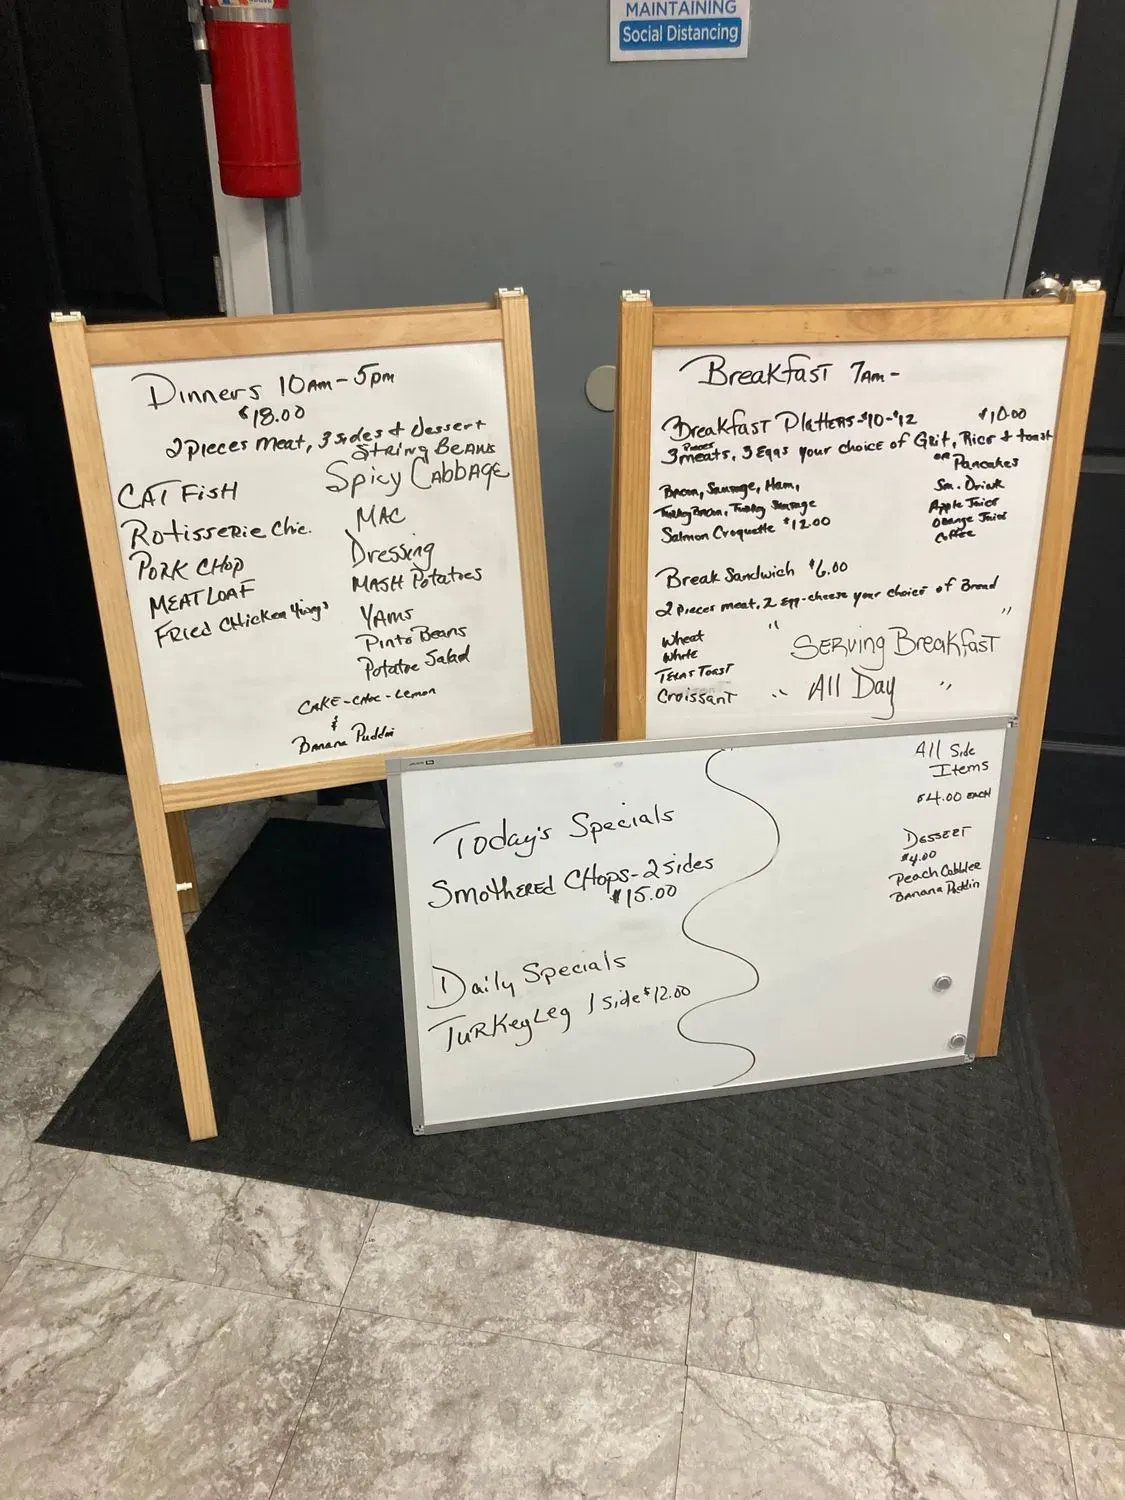 MAINTAINING
Social Distancing
Dinners 10AM-5pm
$18.00
2 Pieces meat, 3 sides & dessert
String Beans
Spicy Cabbage
CAT FISH
MAC
Rotisserie Chic.
Dressing
PORK CHOP
MASH Potatoes
MEATLOAF
YAMS
FRied CHicken 4wings
Pinto Beans
Potatoe Salad
CAKE-CHOC-Lemon
&
Banana Puddin
Breakfast 7AM-
Breakfast Platters-$10-$12 $10.00
3 Pieces meats, 3 Eggs your choice of Grit, Rice & toast
OR Pancakes
Bacon, Sausage, Ham,
Sm. Drink
Turkey Bacon, Turkey Sausage
Apple Juice
Salmon Croquette $12.00
Orange Juice
Coffee
Break Sandwich $6.00
2 Pieces meat, 2 Egg-cheese your choice of Bread
Wheat
White
Texas Toast
Croissant
" Serving Breakfast "
" All Day "
All Side
Items
$4.00 EACH
Today's Specials
Dessert
$4.00
Smothered Chops-2 sides
Peach Cobbler
$15.00
Banana Puddin
Daily Specials
Turkey Leg 1 side $12.00